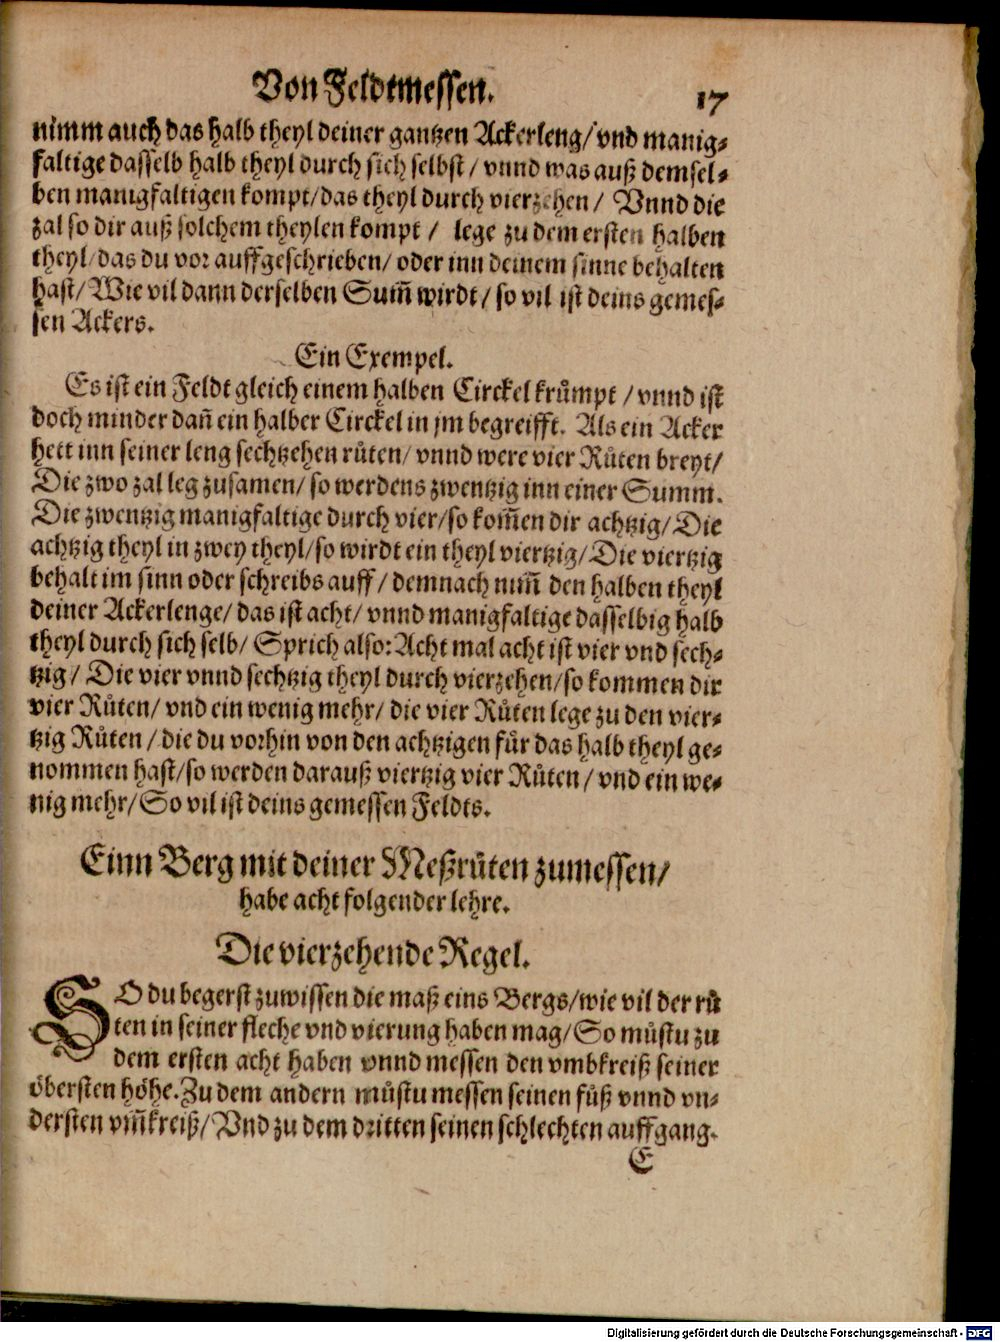 Von Feldtmessen.
17
nimm auch das halb theyl deiner gantzen Ackerleng/ vnd manig-
faltige dasselb halb theyl durch sich selbst / vnnd was auß demsel-
ben manigfaltigen kompt/das theyl durch vierzehen / Vnnd die
zal so dir auß solchem theylen kompt / lege zu dem ersten halben
theyl/das du vor auffgeschrieben/ oder inn deinem sinne behalten
hast/ Wie vil dann derselben Sum̃ wirdt / so vil ist deins gemes-
sen Ackers.
Ein Exempel.
Es ist ein Feldt gleich einem halben Circkel krům̃pt / vnnd ist
doch minder dañ ein halber Circkel in jm begreifft. Als ein Acker
hett inn seiner leng sechtzehen růten/ vnnd were vier Růten breyt/
Die zwo zal leg zusamen/ so werdens zwentzig inn einer Summ.
Die zwentzig manigfaltige durch vier/so kom̃en dir achtzig/ Die
achtzig theyl in zwey theyl/so wirdt ein theyl viertzig/ Die viertzig
behalt im sinn oder schreibs auff / demnach nim̃ den halben theyl
deiner Ackerlenge/ das ist acht/ vnnd manigfaltige dasselbig halb
theyl durch sich selb/ Sprich also: Acht mal acht ist vier vnd sech-
tzig / Die vier vnnd sechtzig theyl durch vierzehen/so kommen dir
vier Růten/ vnd ein wenig mehr/ die vier Růten lege zu den vier-
tzig Růten / die du vorhin von den achtzigen für das halb theyl ge-
nommen hast/so werden darauß viertzig vier Růten / vnd ein we-
nig mehr/ So vil ist deins gemessen Feldts.
Einn Berg mit deiner Meßrůten zumessen/
habe acht folgender lehre.
Die vierzehende Regel.
SO du begerst zuwissen die maß eins Bergs/wie vil der rů
ten in seiner fleche vnd vierung haben mag/ So můstu zu
dem ersten acht haben vnnd messen den vmbkreiß seiner
öbersten höhe. Zu dem andern můstu messen seinen fůß vnnd vn-
dersten vm̃kreiß/ Vnd zu dem dritten seinen schlechten auffgang.
E
Digitalisierung gefördert durch die Deutsche Forschungsgemeinschaft - DFG